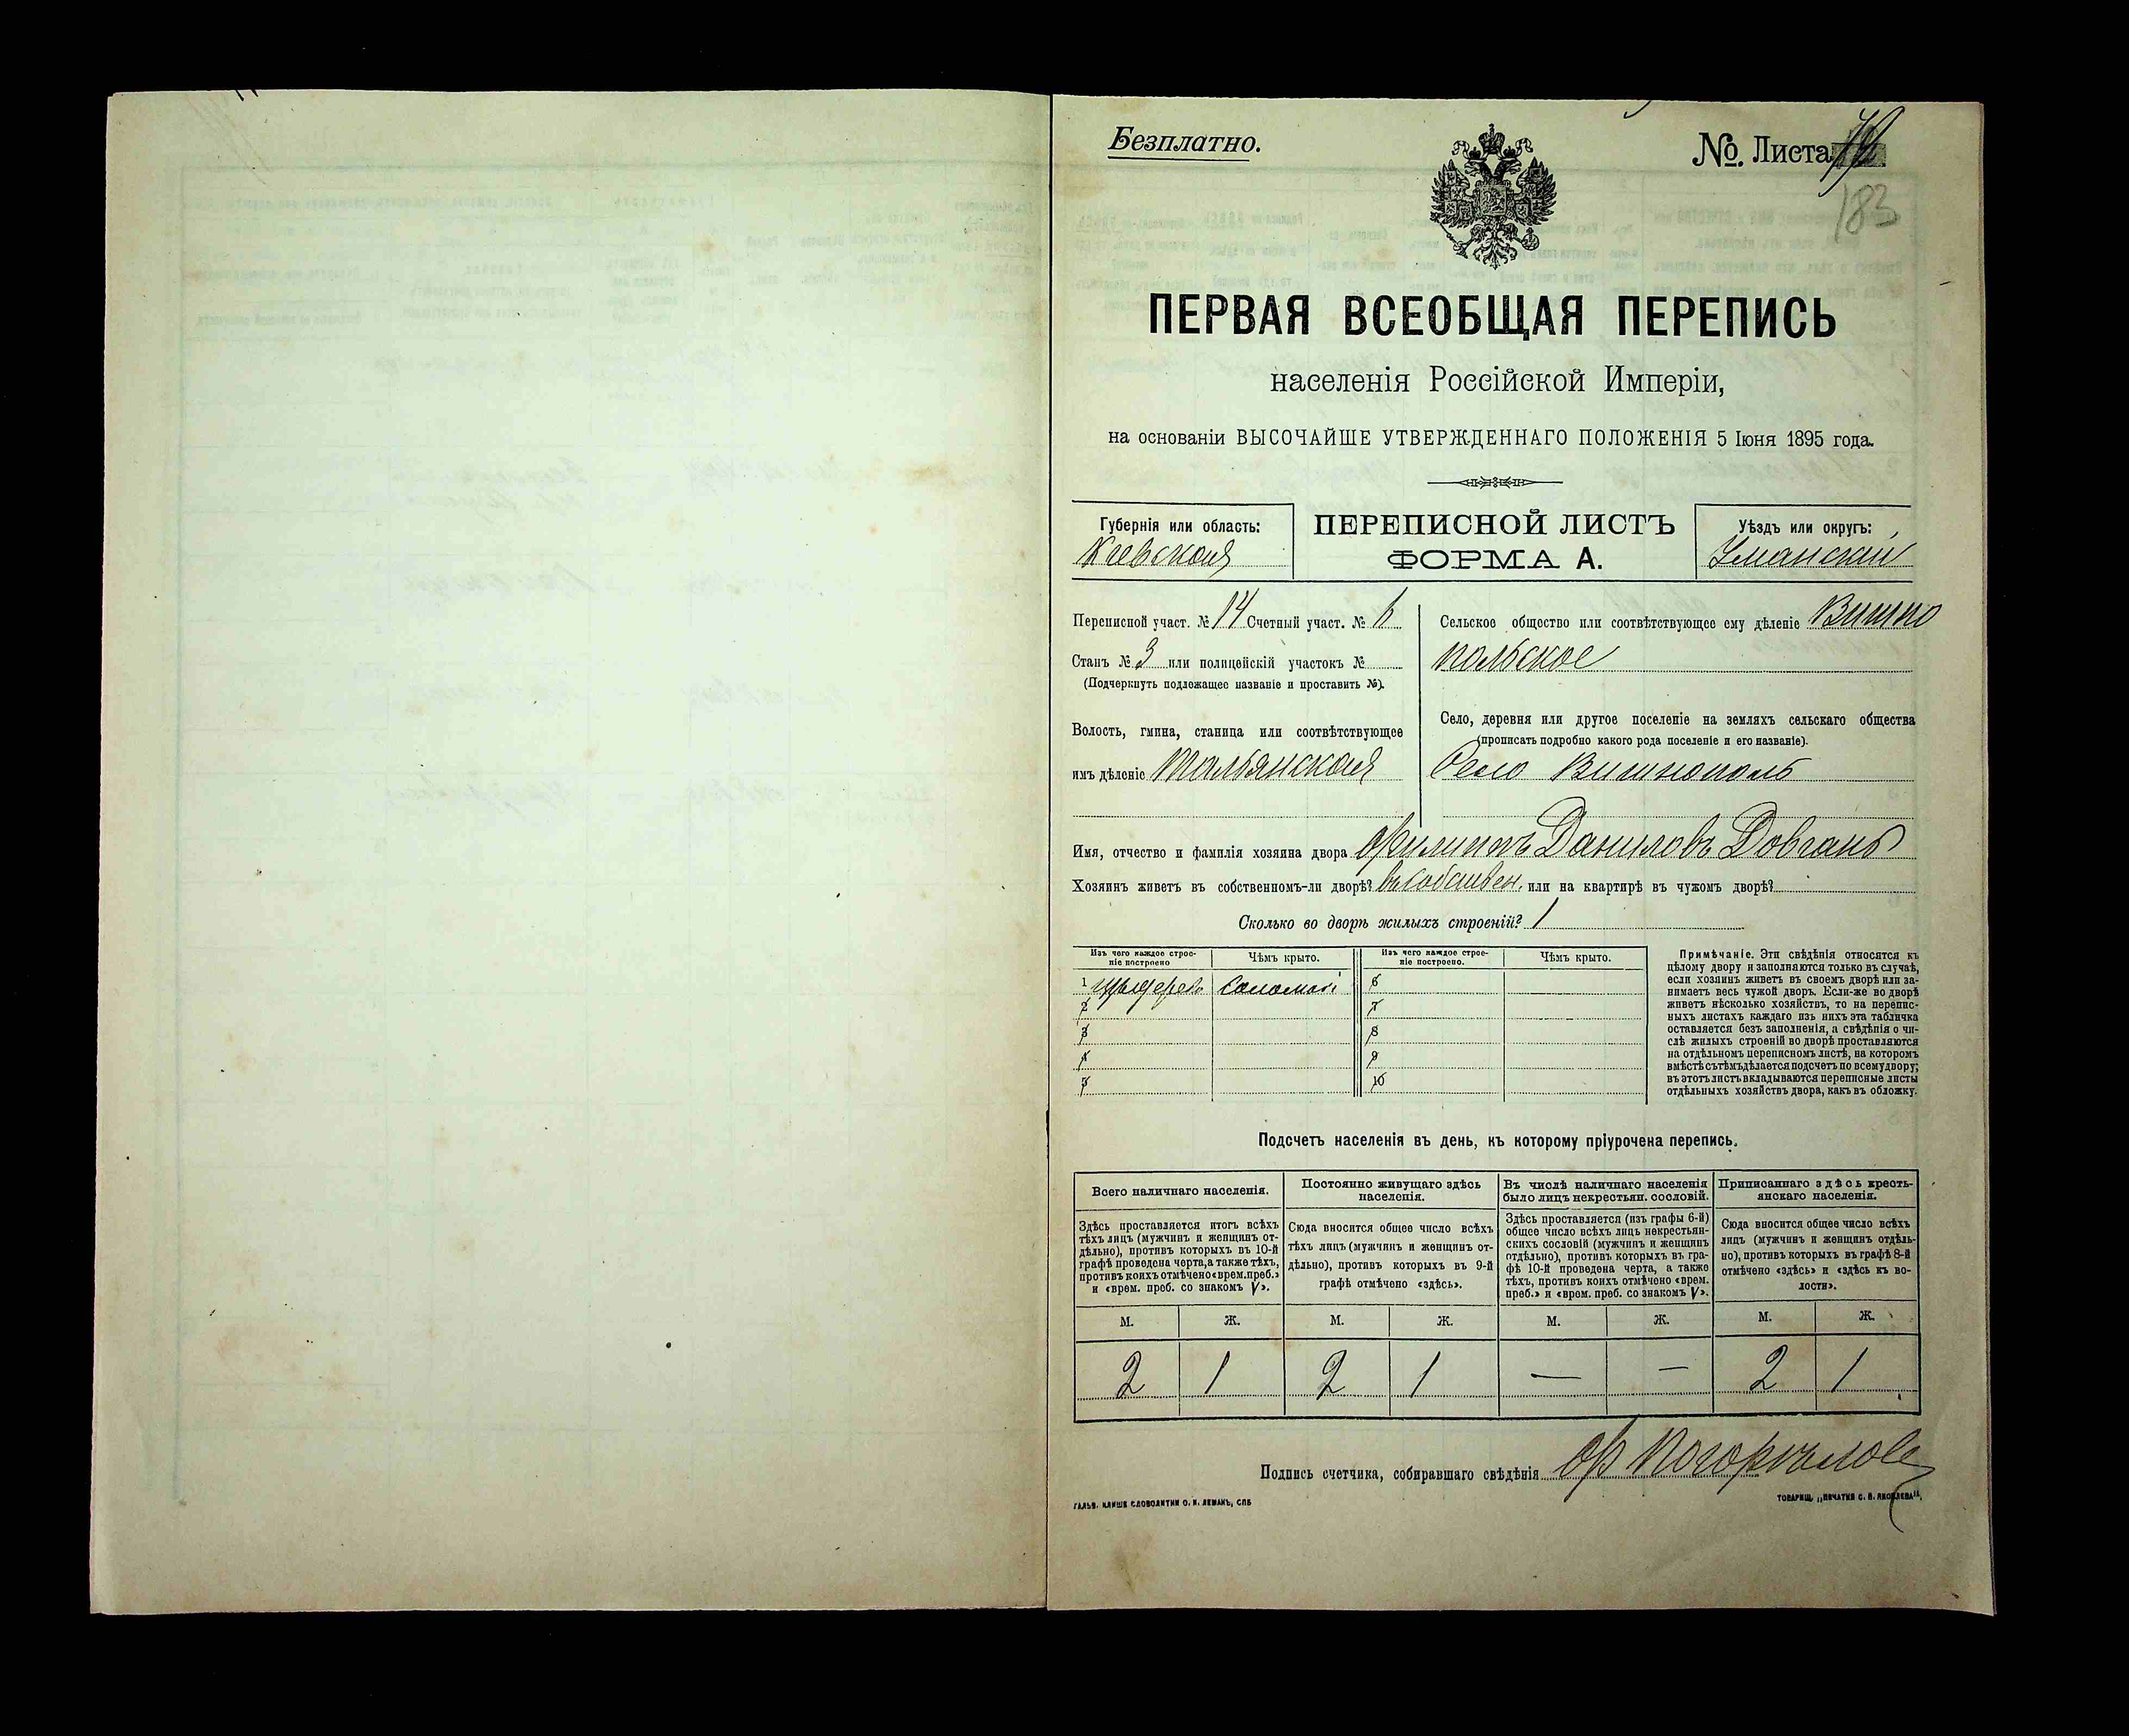 Безплатно.
№. Листа
183
ПЕРВАЯ ВСЕОБЩАЯ ПЕРЕПИСЬ
населенія Россійской Имперіи,
на основаніи ВЫСОЧАЙШЕ УТВЕРЖДЕННАГО ПОЛОЖЕНІЯ 5 Іюня 1895 года.
Губернія или область:
Кіевская
ПЕРЕПИСНОЙ ЛИСТЪ
ФОРМА А.
Уѣздъ или округъ:
Уманскій
Переписной участ. № 14 Счетный участ. № 6
Станъ № 3 или полицейскій участокъ №
(Подчеркнуть подлежащее названіе и проставить №).
Волость, гмина, станица или соотвѣтствующее
имъ дѣленіе Тальянская
Сельское общество или соотвѣтствующее ему дѣленіе Вишно
польское
Село, деревня или другое поселеніе на земляхъ сельскаго общества
(прописать подробно какого рода поселеніе и его названіе).
Село Вишнополь
Имя, отчество и фамилія хозяина двора Филиппъ Даниловъ Довгань
Хозяинъ живетъ въ собственномъ-ли дворѣ? въ собствен. или на квартирѣ въ чужомъ дворѣ?
Сколько во дворѣ жилыхъ строеній? 1
Изъ чего каждое строе-
ніе построено
Чѣмъ крыто.
Изъ чего каждое строе-
ніе построено.
Чѣмъ крыто.
1 изъ дерева Соломой 6
2 7
3 8
4 9
5 10
Примѣчаніе. Эти свѣдѣнія относятся къ
цѣлому двору и заполняются только въ случаѣ,
если хозяинъ живетъ въ своемъ дворѣ или за-
нимаетъ весь чужой дворъ. Если-же во дворѣ
живетъ нѣсколько хозяйствъ, то на перепис-
ныхъ листахъ каждаго изъ нихъ эта табличка
оставляется безъ заполненія, а свѣдѣнія о чи-
слѣ жилыхъ строеній во дворѣ проставляются
на отдѣльномъ переписномъ листѣ, на которомъ
вмѣстѣ съ тѣмъ дѣлается подсчетъ по всему двору;
въ этотъ листъ вкладываются переписные листы
отдѣльныхъ хозяйствъ двора, какъ въ обложку.
Подсчетъ населенія въ день, къ которому пріурочена перепись.
Всего наличнаго населенія.
Здѣсь проставляется итогъ всѣхъ
тѣхъ лицъ (мужчинъ и женщинъ от-
дѣльно), противъ которыхъ въ 10-й
графѣ проведена черта, а также тѣхъ,
противъ коихъ отмѣчено «врем. преб.»
и «врем. преб. со знакомъ V».
Постоянно живущаго здѣсь
населенія.
Сюда вносится общее число всѣхъ
тѣхъ лицъ (мужчинъ и женщинъ от-
дѣльно), противъ которыхъ въ 9-й
графѣ отмѣчено «здѣсь».
Въ числѣ наличнаго населенія
было лицъ некрестьян. сословій.
Здѣсь проставляется (изъ графы 6-й)
общее число всѣхъ лицъ некрестьян-
скихъ сословій (мужчинъ и женщинъ
отдѣльно), противъ которыхъ въ гра-
фѣ 10-й проведена черта, а также
тѣхъ, противъ коихъ отмѣчено «врем.
преб.» и «врем. преб. со знакомъ V».
Приписаннаго здѣсь кресть-
янскаго населенія.
Сюда вносится общее число всѣхъ
лицъ (мужчинъ и женщинъ отдѣль-
но), противъ которыхъ въ графѣ 8-й
отмѣчено «здѣсь» и «здѣсь къ во-
лости».
М. Ж. М. Ж. М. Ж. М. Ж.
2 1 2 1 — — 2 1
Подпись счетчика, собиравшаго свѣдѣнія Ф Погорѣлов
ГАЛЬВ. КЛИШЕ СЛОВОЛИТНИ О. И. ЛЕМАНЪ, СПБ
ТОВАРИЩ. „ПЕЧАТНЯ С. П. ЯКОВЛЕВА",